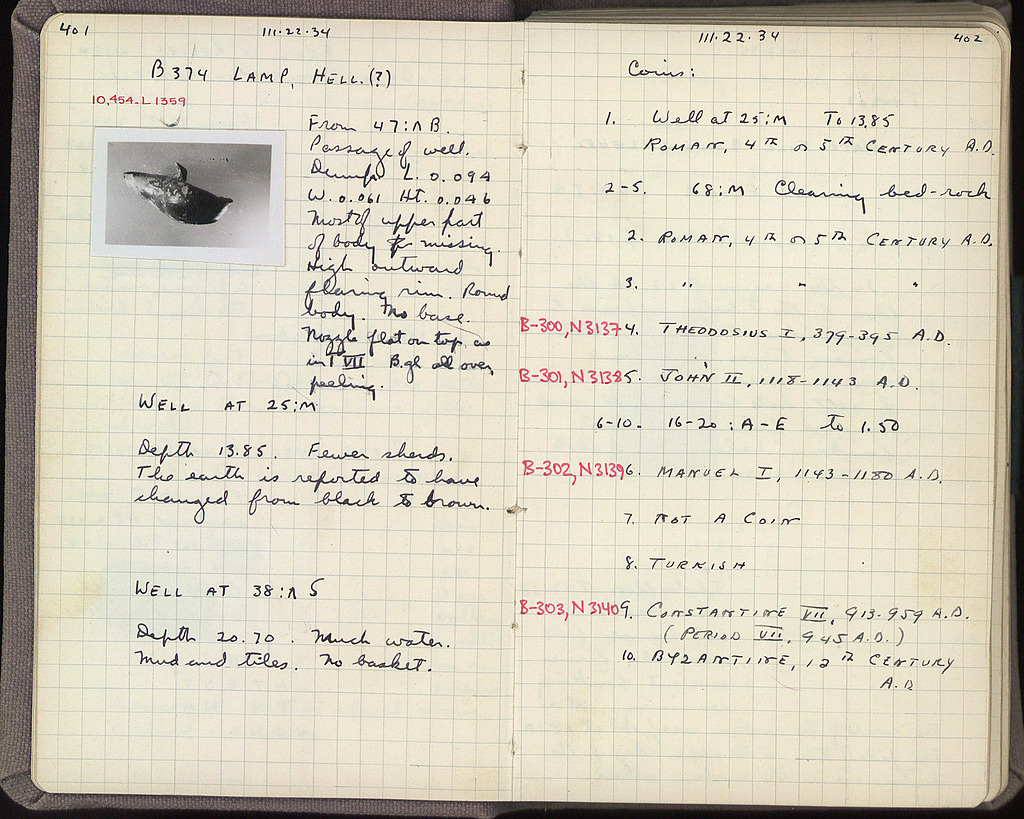 401
111.22.34
B 374 LAMP, HELL.(?)
10,454-L 1359
From 47:Λ B.
Passage of well.
Dump L. 0.094
W. 0.061 Ht. 0.046
Most of upper part
of body missing.
High outward
flaring rim. Round
body. No base.
Nozzle flat on top as
in VII B.gl all over,
peeling.
WELL AT 25:M
Depth 13.85. Fewer sherds.
The earth is reported to have
changed from black to brown.
WELL AT 38:Λ S
Depth 20.70. Much water.
Mud and tiles. No basket.
111.22.34
402
Coins:
1. Well at 25:M To 13.85
ROMAN, 4TH or 5TH CENTURY A.D.
2-5. 68:M Cleaning bed-rock
2. ROMAN, 4TH or 5TH CENTURY A.D.
3. " " "
B-300, N 3137 4. THEODOSIUS I, 379-395 A.D.
B-301, N 3138 5. JOHN II, 1118-1143 A.D.
6-10. 16-20:A-E To 1.50
B-302, N 3139 6. MANUEL I, 1143-1180 A.D.
7. NOT A COIN
8. TURKISH
B-303, N 3140 9. CONSTANTINE VII, 913-959 A.D.
(PERIOD VII, 945 A.D.)
10. BYZANTINE, 12TH CENTURY
A.D.